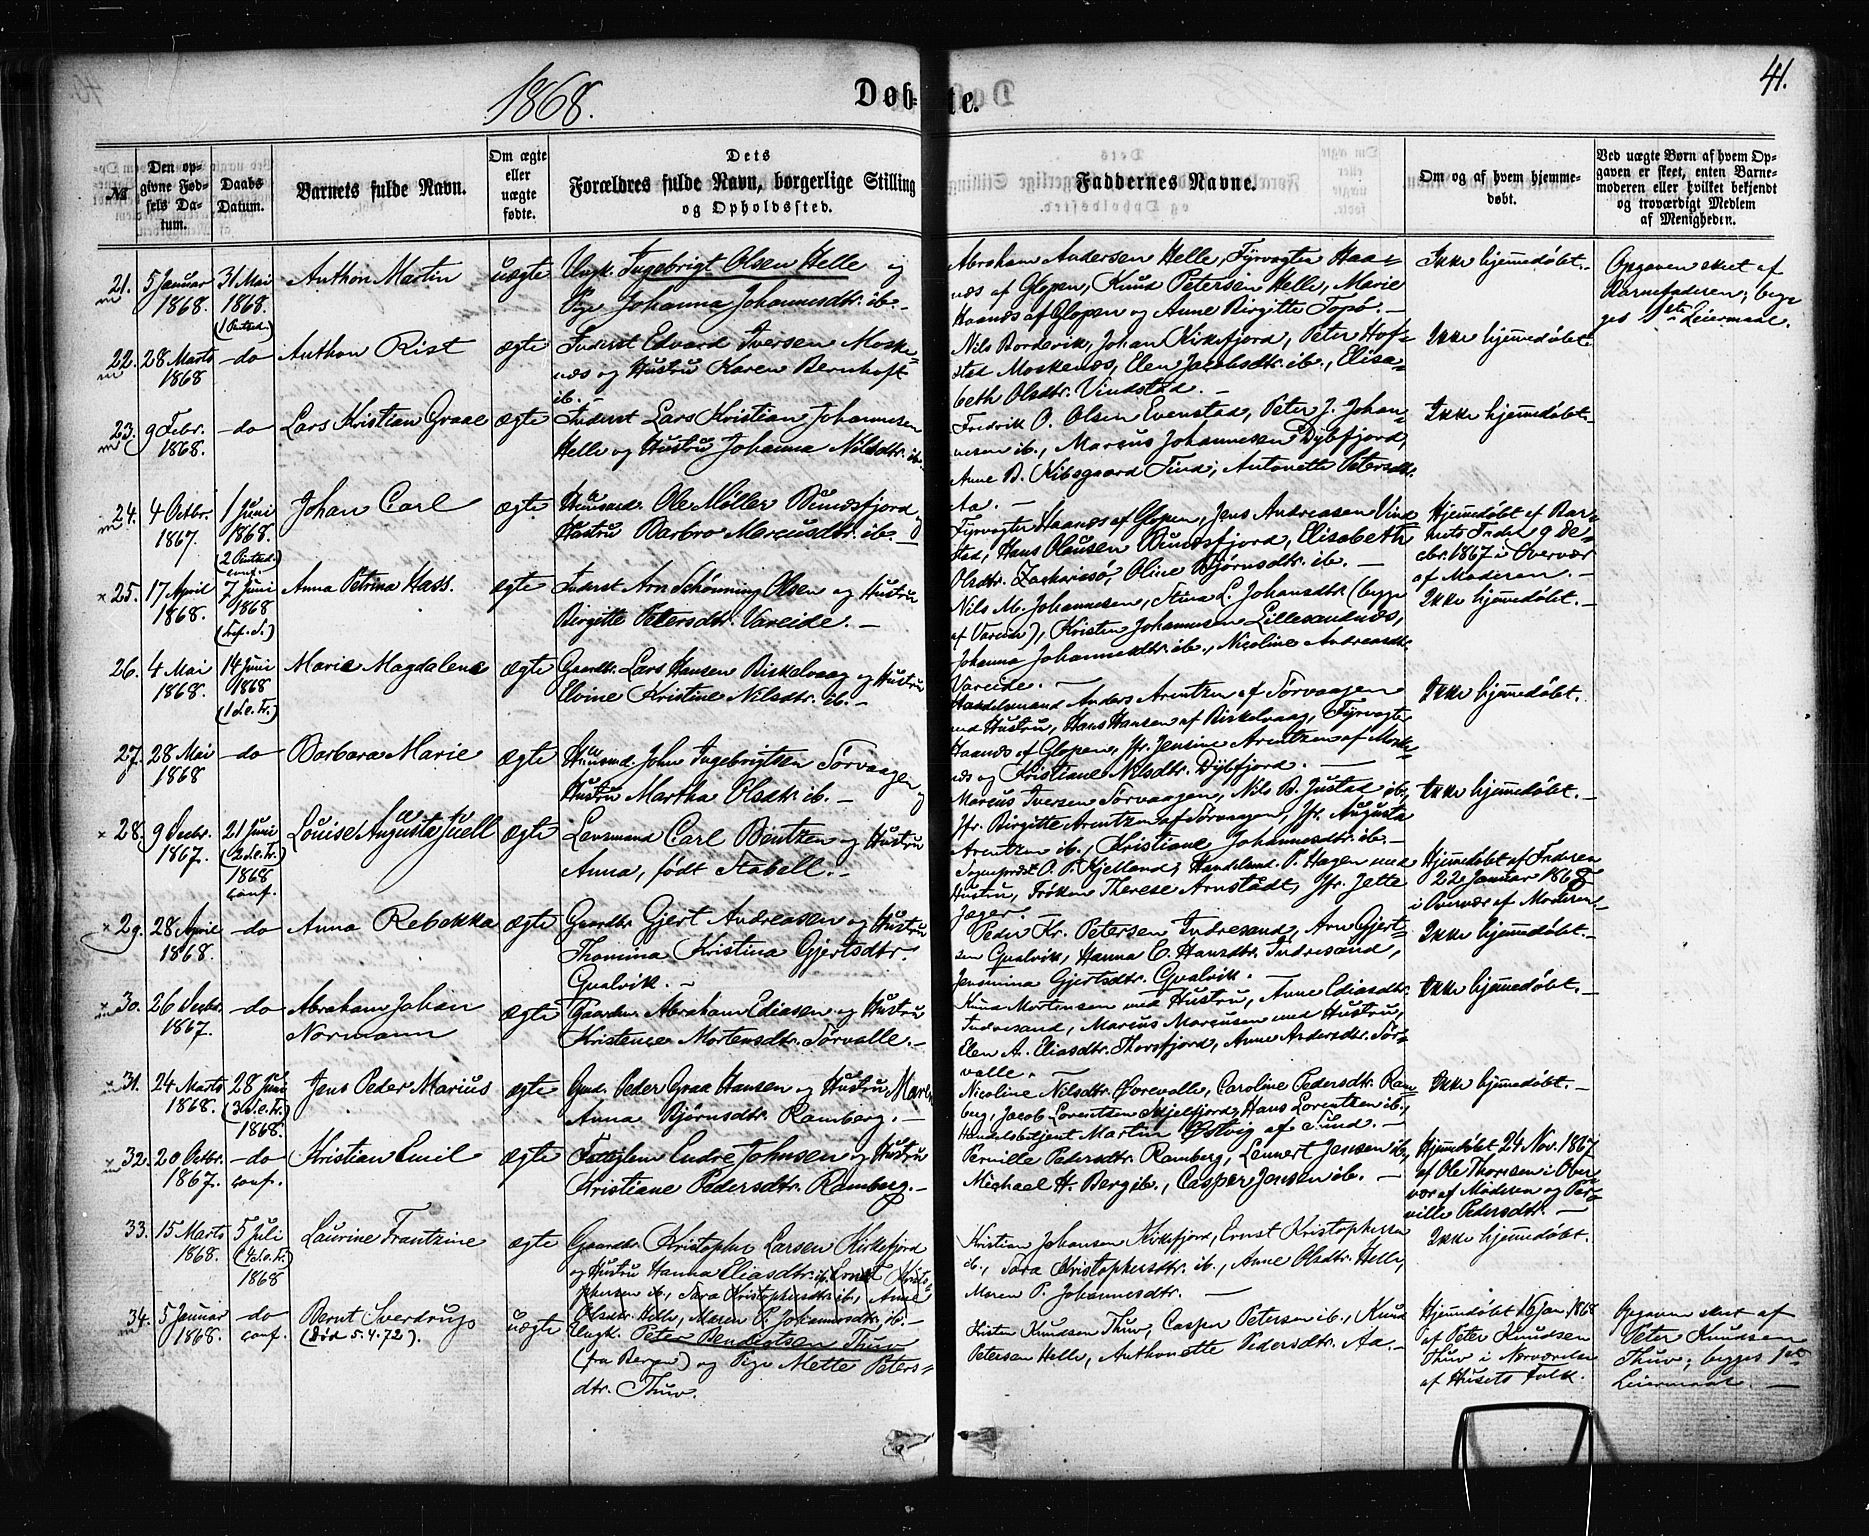 1868.
Døbte.
41.
№
Den opgivne Fødsels Datum.
Daabs Datum.
Barnets fulde Navn.
Om ægte eller uægte fødte.
Dets Forældres fulde Navn, borgerlige Stilling og Opholdssted.
Faddernes Navne.
Om og af hvem hjemmedøbt.
Ved uægte Børn af hvem Opgaven er skeet, enten Barnemoderen eller hvilket bekjendt og troværdigt Medlem af Menigheden.
21. 5 Januar 1868. 31 Mai 1868. (1 Pintsed.) Anthon Martin uægte Ungk. Ingebrigt Olsen Helle og
Pige Johanna Johannesdtr. ib. —
Abraham Andersen Helle, Fyrvogter Haa-
næs af Glopen, Knud Petersen Helle, Marie
Haanæs af Glopen og Anne Birgitte Topø. —
Ikke hjemmedøbt.
Opgaven skeet af
Barnefaderen; beg-
ges 1ste Leiermaal.
22. 28 Marts 1868 do Anthon Rist ægte Inderst Edvard Iversen Moske-
næs og Hustru Karen Bernhoft
ib. —
Nils Bordevik, Johan Kirkefjord, Peter Hof-
stad Moskenæs, Elen Jacobsdtr. ib., Elisa-
beth Olsdtr. Vindstad. —
Ikke hjemmedøbt
23. 9 Febr. 1868. do Lars Kristian Graae ægte Inderst Lars Kristian Johannesen
Helle og Hustru Johanna Nilsdtr. ib.
Fredrik O. Olsen Evenstad, Peter J. Johan-
nesen ib., Marcus Johannesen Dybfjord,
Anne B. Kibsgaard Tind, Antonette Petersdtr.
Aa. —
Ikke hjemmedøbt.
24. 4 Octbr. 1867. 1 Juni 1868. (2 Pintsed.) conf. Johan Carl ægte Huusmd. Ole Møller Bunæsfjord og
Hustru Barbro Marcusdtr. ib. —
Fyrvogter Haanæs af Glopen, Jens Andreasen Vind-
stad, Hans Olausen Bunæsfjord, Elisabeth
Olsdtr. Zachariasø, Oline Bjørnsdtr. ib. —
Hjemmedøbt af Bar-
nets Fader 9 De-
cbr. 1867 i Overvær
af Moderen. —
25. 17 April 1868. 7 Juni 1868 (Tref. S.) Anna Petrina Hass. ægte Inderst Arn Schønning Olsen og Hustru
Birgitte Petersdtr. Vareide. —
Nils M. Johannesen, Stina L. Johansdtr. (begge
af Vareide), Kristen Johannesen Lillesandnæs,
Johanna Johannesdtr. ib., Nicoline Andreasdtr.
Vareide. —
Ikke hjemmedøbt. —
26. 4 Mai 1868. 14 Juni 1868 (1 S. e. Tr.) Marie Magdalena ægte Gaardbr. Lars Hansen Biskelvaag og Hustru
Elvine Kristine Nilsdtr. ib. —
Handelsmand Anders Arentzen af Sørvaagen
med Hustru, Hans Hansen af Biskelvaag, Fyrvogter
Haanæs af Glopen, Jfr. Jensine Arentzen af Moske-
næs og Kristiane Nilsdtr. Dybfjord. —
Ikke hjemmedøbt.
27. 28 Mai 1868 do Barbara Marie ægte Huusmd. John Ingebrigtsen Sørvaagen og
Hustru Martha Olsdtr. ib. —
Marcus Iversen Sørvaagen, Nils B. Justad ib.,
Jfr. Birgitte Arentzen af Sørvaagen, Jfr. Augusta
Arentzen ib., Kristiane Johannesdtr. ib. —
Ikke hjemmedøbt. —
28. 9 Decbr. 1867. 21 Juni (2 S. e. Tr.) 1868 conf. Louise Augusta Juell ægte Lensmand Carl Bentzen og Hustru
Anna, født Stabell. —
Sognepræst O. P. Kjelland, Handelsmd. P. Hagen med
Hustru, Frøken Therese Arnstadt, Jfr. Jette
Jæger. —
Hjemmedøbt af Faderen
22 Januar 1868
i Overvær af Moderen.
29. 28 April 1868. do Anna Rebekka ægte Gaardbr. Gjert Andreasen og Hustru
Thomina Kristina Gjertsdtr.
Qvalvik. —
Peder Kr. Petersen Indresand, Arn Gjert-
sen Qvalvik, Hanna C. Hansdtr. Indresand,
Jensmina Gjertsdtr. Qvalvik. —
Ikke hjemmedøbt. —
30. 26 Decbr. 1867. do Abraham Johan
Normann ægte Gaardbr. Abraham Ediasen og Hustru
Kristence Mortensdtr. Sørvalle. —
Knud Mortensen med Hustru, Anne Ediasdtr.
Indresand, Marcus Marcusen med Hustru,
Elen A. Eliasdtr. Thorsfjord, Anne Andersdtr. Sør-
valle. —
Ikke hjemmedøbt. —
31. 24 Marts 1868. 28 Juni (3 S. e. Tr.) 1868. Jens Peder Marius ægte Gmd. Peder Graa Hansen og Hustru Maren
Anna Bjørnsdtr. Ramberg. —
Nicoline Nilsdtr. Ørevalle, Caroline Pedersdtr. Ram-
berg, Jacob Lorentzen Skjelfjord, Hans Lorentzen ib.,
Handelsbetjent Martin Østvig af Sund. —
Ikke hjemmedøbt. —
32. 20 Octbr. 1867. do conf. Kristian Emil ægte Fattiglem Endre Johnsen og Hustru
Kristiane Pedersdtr. Ramberg. —
Pernille Pedersdtr. Ramberg, Lennert Jensen ib.,
Michael H. Berg ib., Casper Jensen ib. —
Hjemmedøbt 24 Nov. 1867
af Ole Thomsen i Over-
vær af Moderen og Per-
nille Pedersdtr. —
33. 15 Marts 1868. 5 Juli (4 S. e. Tr.) 1868 Laurine Frantzine ægte Gaardbr. Kristopher Larsen Kirkefjord
og Hustru Hanna Eliasdtr. ib. Ernst Kristo-
phersen ib., Sara Kristophersdtr. ib., Anne
Olsdtr. Helle, Maren P. Johannesdtr. ib. —
Kristian Johansen Kirkefjord, Ernst Kristophersen
ib., Sara Kristophersdtr. ib., Anne Olsdtr. Helle,
Maren P. Johannesdtr. —
Ikke hjemmedøbt.
34. 5 Januar 1868. do conf. Bernt Sverdrup
(Død 5.4.72). uægte Ungk. Peter Bendixtsen Thuv
(fra Bergen) og Pige Mette Peters-
dtr. Thuv.
Kristen Knudsen Thuv, Casper Petersen ib., Knud
Petersen Helle, Anthonette Pedersdtr. Aa. —
Hjemmedøbt 16 Jan. 1868
af Peter Knudsen
Thuv i Nærværelse
af Husets Folk.
Opgaven skeet af
Peter Knudsen
Thuv; begges 1ste
Leiermaal. —